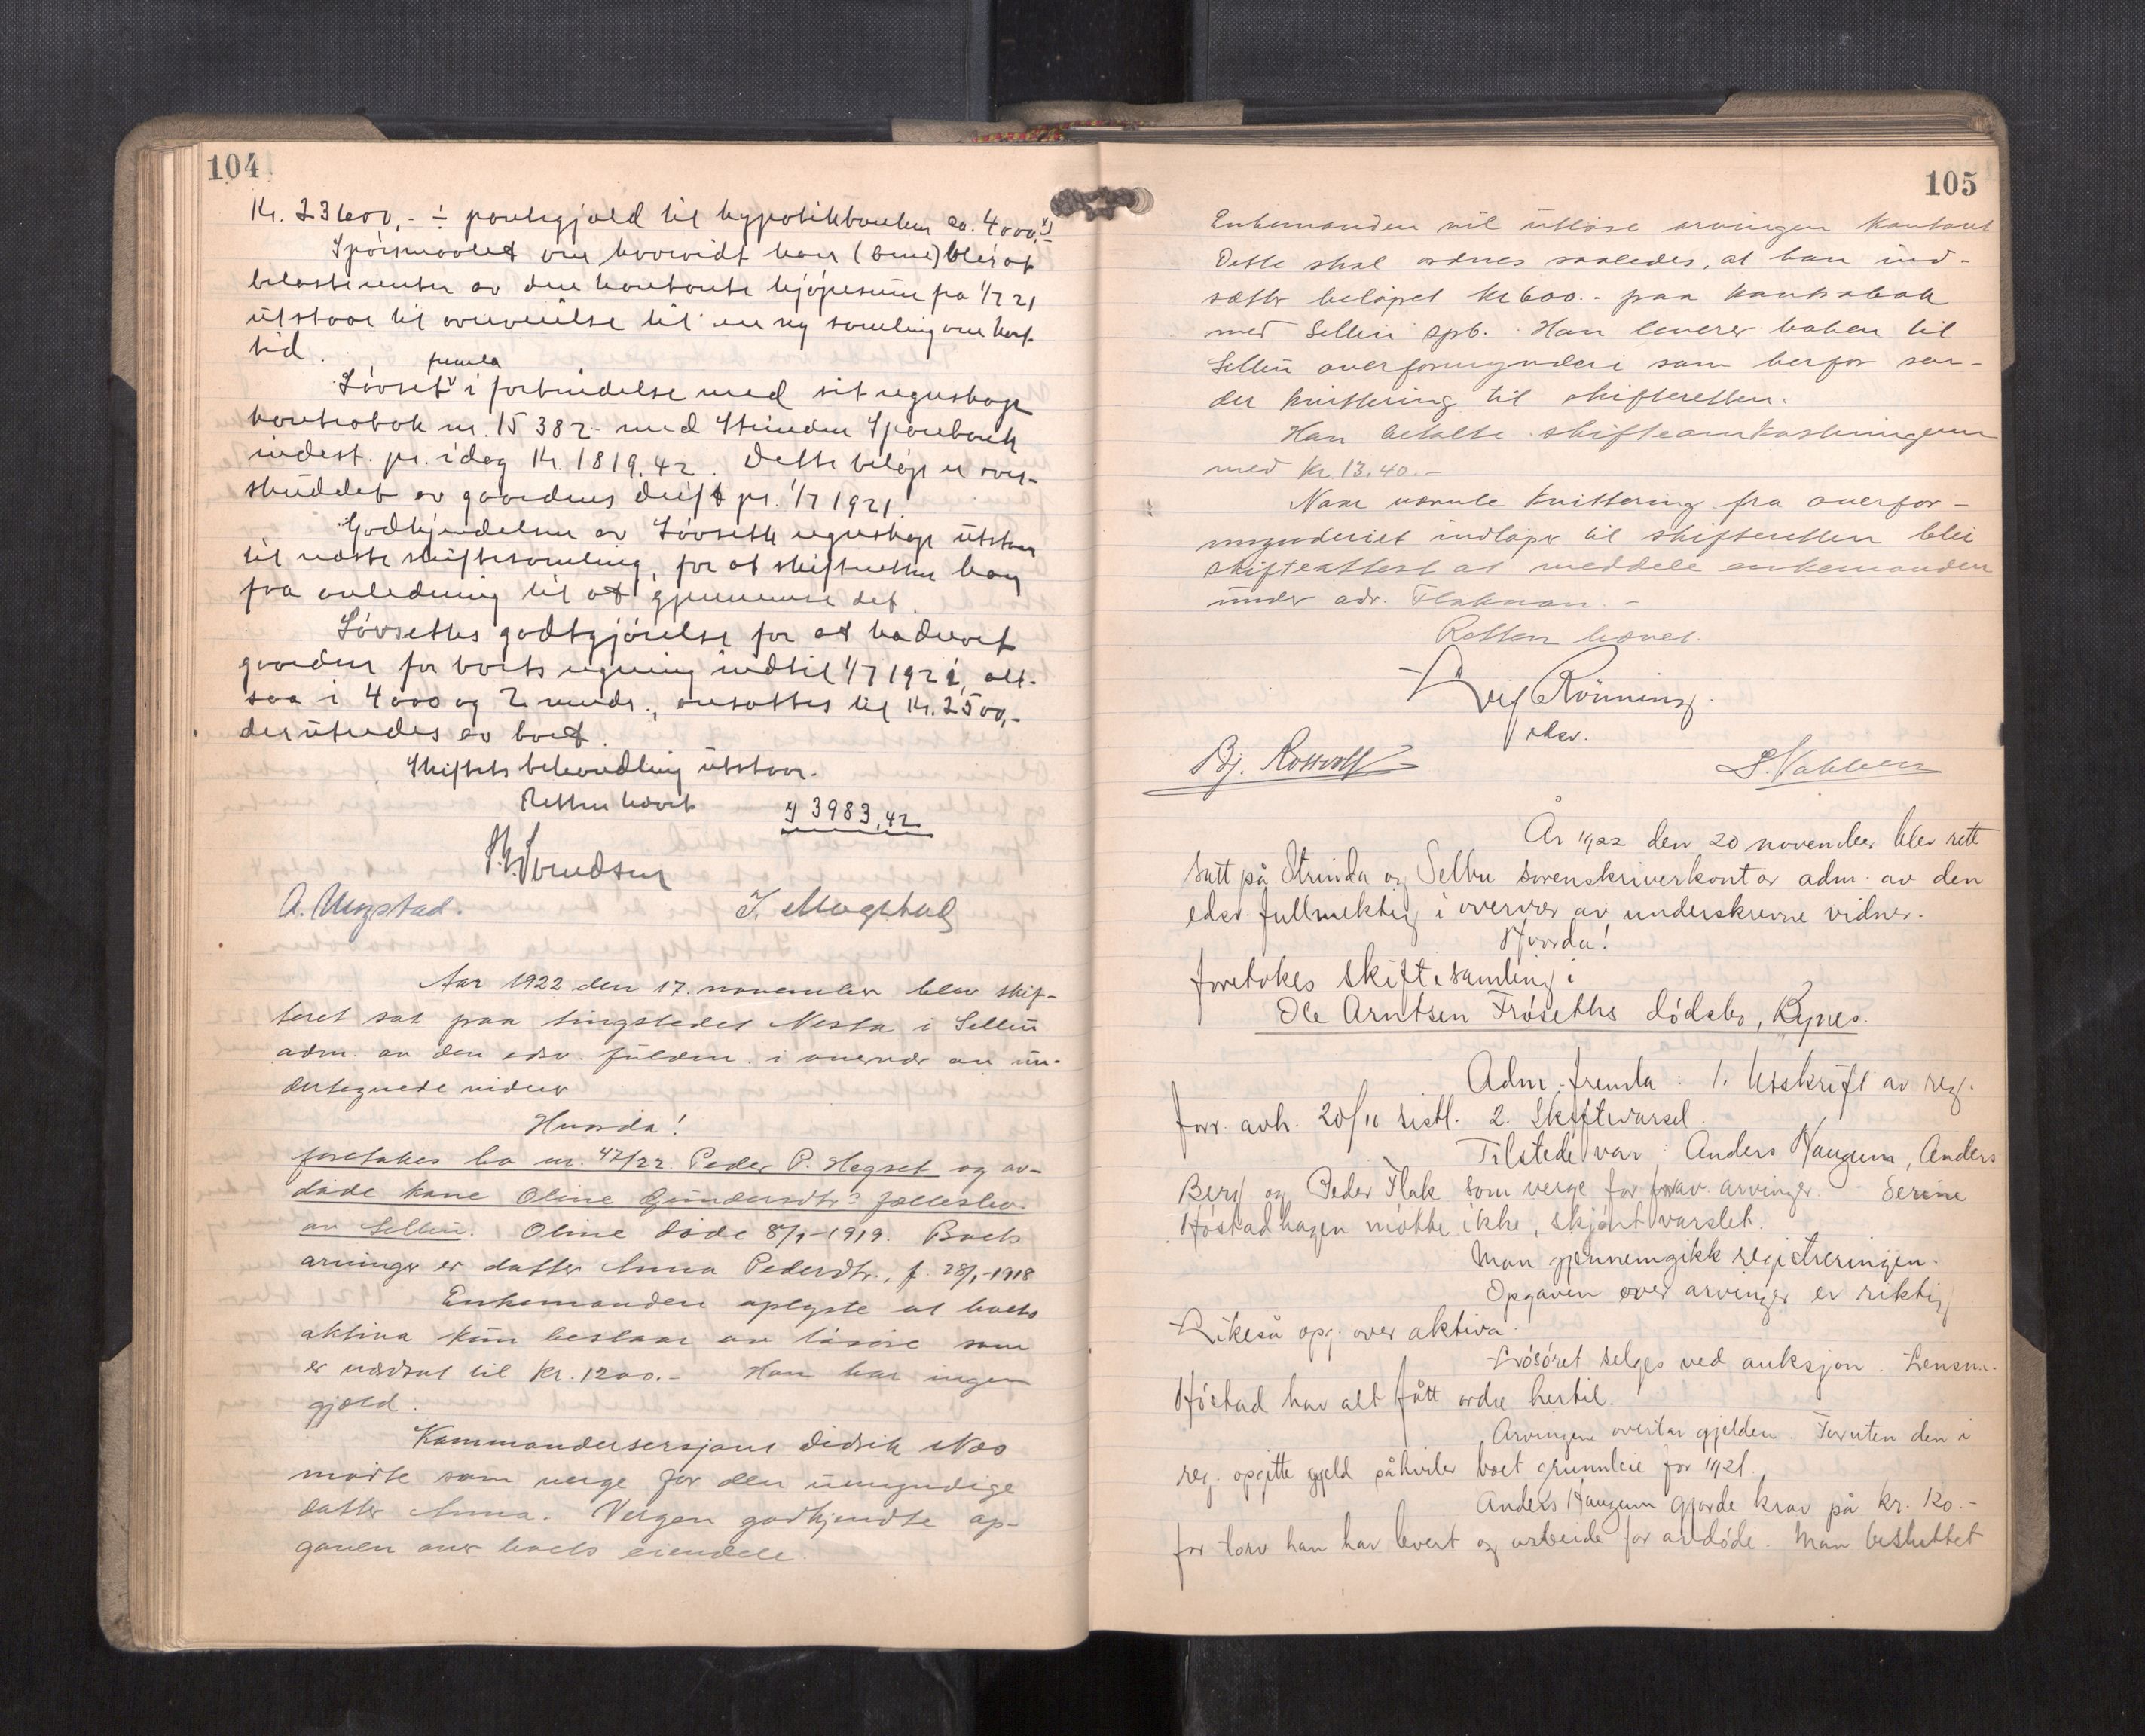 104
Kr. 23600,- ÷ pantegjæld til hypotikbanken ca. 4000,-
Spörsmaalet om hvorvidt han (Arne) blir at
belaste renter av den kontante kjöpesum fra 1/7 21
utstaar til avgjörelse til en ny samling om kort
tid.
Lövset fremla i forbindelse med sit regnskap
kontrabok nr. 15382 med Strinden Sparebank
indest. pr. idag Kr. 1819.42. Dette beløp er over-
skuddet av gaardens drift pr. 1/7 1921.
Godkjendelsen av Lövseths regnskap utstaar
til næste skiftesamling, for at skifteretten kan
faa anledning til at gjennemse det.
Lövseths godtgjörelse for at ha drevet
gaarden for boets regning indtil 1/7 1921, alt-
saa i 4 aar og 2 mndr., ansattes til Kr. 2500,-
der utredes av boet.
Skiftets behandling utstaar.
Retten hævet
3983,42
A. Ugstad.
Aar 1922 den 17. november blev skif-
teret sat paa tingstedet Nesta i Selbu
adm. av den edsv. fuldm. i overvær av un-
dertegnede vidner
Hvorda!
foretokes bo nr. 47/22. Peder P. Hegset og av-
døde kone Oline Gundersdtr.s fællesbo
av Selbu. Oline døde 8/1-1919. Boets
arvinger er datter Anna Pedersdtr., f. 28/1-1918
Enkemanden oplyste at boets
aktiva kun bestaar av løsøre som
er værdsat til kr. 1200.- Han har ingen
gjæld.
Kommandersersjant Didrik Næs
møtte som verge for den umyndige
datter Anna. Vergen godkjendte op-
gaven over boets eiendele.
105
Enkemanden vil utløse arvingen kontant
Dette skal ordnes saaledes, at han ind-
sætter beløpet kr 600.- paa kontrabok
med Selbu spb. Han leverer boken til
Selbu overformynderi som herfor sen-
der kvittering til skifteretten.
Han betalte skifteomkostningene
med kr. 13.40.-
Naar nævnte kvittering fra overfor-
mynderiet indløper til skifteretten blir
skifteattest at meddele enkemanden
under adr. Flaknan.-
Retten hævet.
Leif Rönning
edsv.
Bj. Rossvoll
År 1922 den 20 november blev rett
satt på Strinda og Selbu sorenskriverkontor adm. av den
edsv. fullmektig i overvær av underskrevne vidner.
Hvorda!
foretokes skiftesamling i
Ole Arntsen Fröseths dödsbo, Bynes.
Adm. fremla: 1. Utskrift av reg.
forr. avh. 20/10 sistl. 2. Skiftevarsel.
Tilstede var: Anders Haugum, Anders
Berg og Peder Flak som verge for frav. arvinger. Serine
Höstadhagen mötte ikke, skjönt varslet.
Man gjennemgikk registreringen.
Opgaven over arvinger er riktig
Likeså opg. over aktiva.
Lösöret selges ved auksjon. Lensm.
Höstad har alt fått ordre hertil.
Arvingene overtar gjelden. Foruten den i
reg. opgitte gjeld påhviler boet grunnleie for 1921.
Anders Haugum gjorde krav på kr. 120.-
for torv han har levert og arbeide for avdöde. Man besluttet